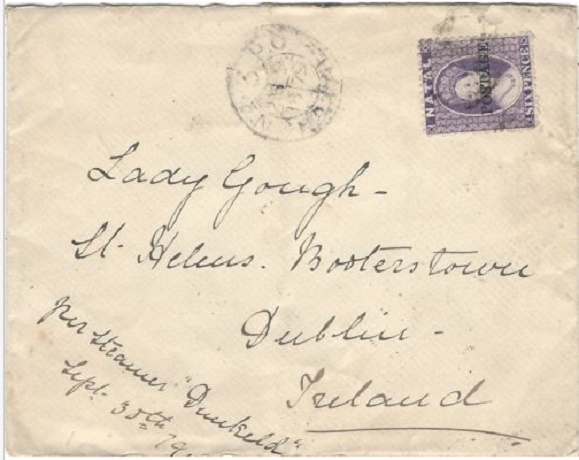 G.P.O. NATAL
NATAL
POSTAGE
SIXPENCE
Lady Gough -
St. Helens. Booterstown
Dublin -
Ireland
per steamer "Dunkeld"
Sept. 30th 79.